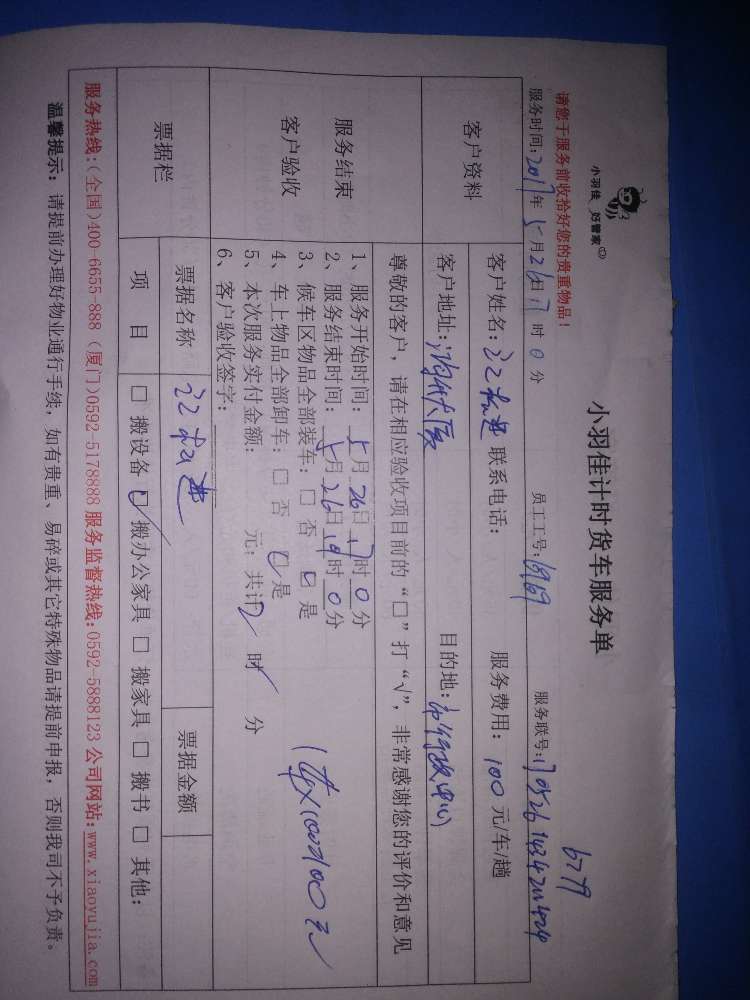 小羽佳 好管家
小羽佳计时货车服务单
6779
请您于服务前收拾好您的贵重物品！
服务时间：2017年5月26日17时0分 员工工号：1969 服务联号：
客户资料
客户姓名： 联系电话： 服务费用：100元/车/趟
客户地址： 目的地：市行政中心
尊敬的客户，请在相应验收项目前的“□”打“√”，非常感谢您的评价和意见
服务结束
客户验收
1、服务开始时间：5月26日17时0分
2、服务结束时间：5月26日19时0分
3、候车区物品全部装车：□ 否 □ 是
4、车上物品全部卸车：□ 否 □ 是
5、本次服务实付金额： 元；共计2时 分
6、客户验收签字：
1车×100=100元
票据栏
票据名称 票据金额
项 目 □ 搬设备 □ 搬办公家具 □ 搬家具 □ 搬书 □ 其他：
服务热线：(全国)400-6655-888 (厦门)0592-5178888 服务监督热线：0592-5888123 公司网站：www.xiaoyujia.com
温馨提示：请提前办理好物业通行手续，如有贵重、易碎或其它特殊物品请提前申报，否则我司不予负责。